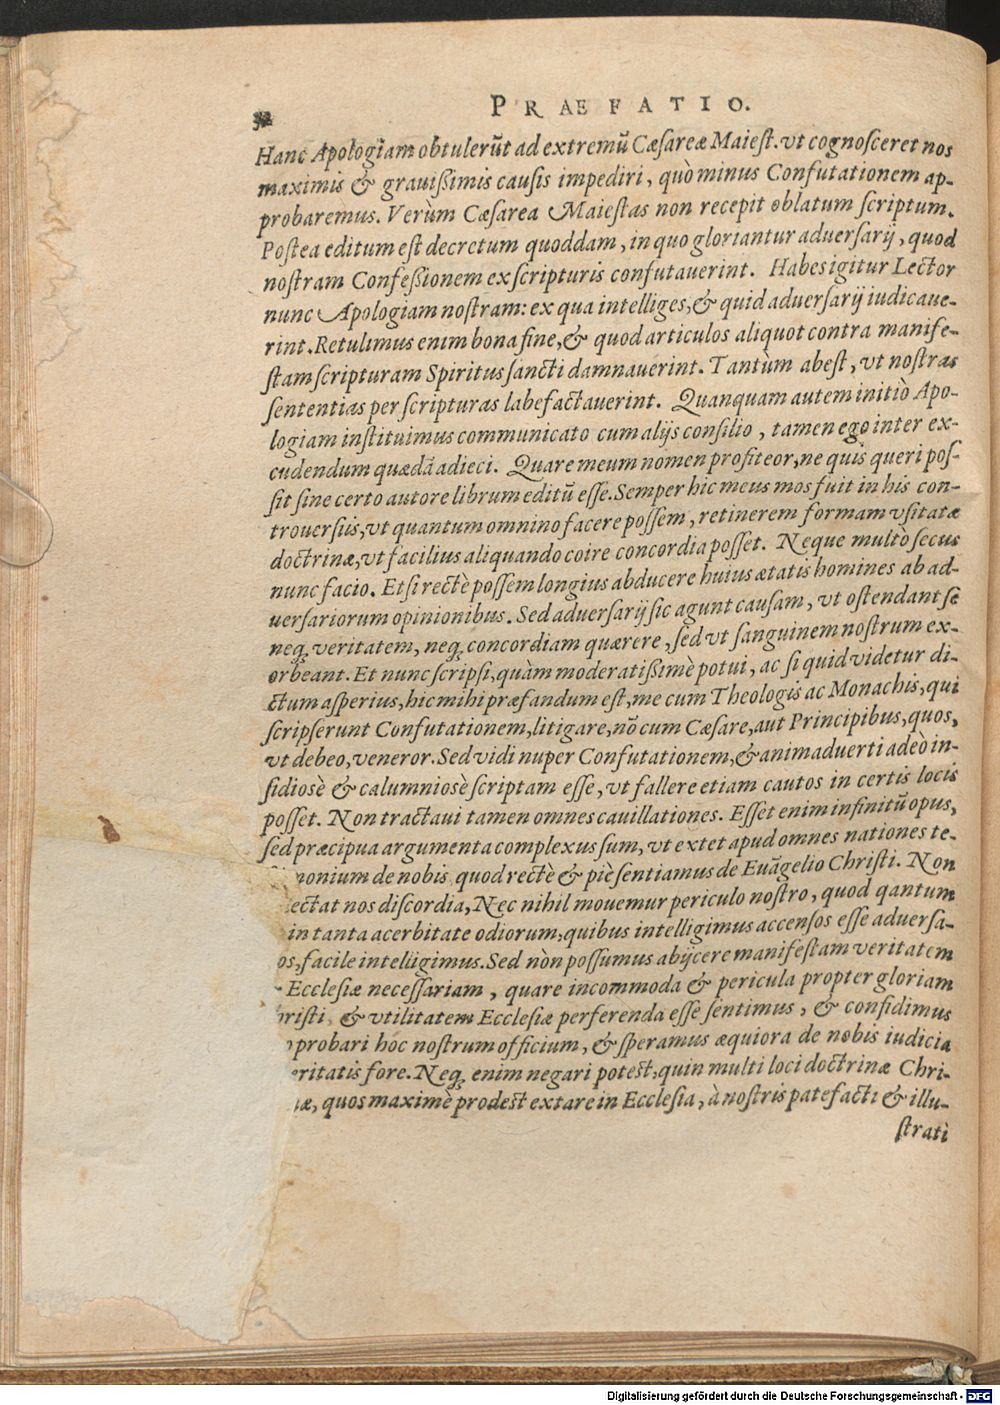 PRAEFATIO.
Hanc Apologiam obtulerūt ad extremū Cæsareæ Maiest. vt cognosceret nos
maximis & grauißimis causis impediri, quò minus Confutationem ap-
probaremus. Verùm Cæsarea Maiestas non recepit oblatum scriptum.
Postea editum est decretum quoddam, in quo gloriantur aduersarij, quod
nostram Confeßionem ex scripturis confutauerint. Habes igitur Lector
nunc Apologiam nostram: ex qua intelliges, & quid aduersarij iudicaue-
rint. Retulimus enim bona fine, & quod articulos aliquot contra manife-
stam scripturam Spiritus sancti damnauerint. Tantùm abest, vt nostras
sententias per scripturas labefactauerint. Quanquam autem initiò Apo-
logiam instituimus communicato cum alijs consilio, tamen ego inter ex-
cudendum quædā adieci. Quare meum nomen profiteor, ne quis queri pos-
sit sine certo autore librum editū esse. Semper hic meus mos fuit in his con-
trouersiis, vt quantum omnino facere possem, retinerem formam vsitatæ
doctrinæ, vt facilius aliquando coire concordia posset. Neque multò secus
nunc facio. Etsi rectè possem longius abducere huius ætatis homines ab ad-
uersariorum opinionibus. Sed aduersarij sic agunt causam, vt ostendant se
neq; veritatem, neq; concordiam quærere, sed vt sanguinem nostrum ex-
orbeant. Et nunc scripsi, quàm moderatißimè potui, ac si quid videtur di-
ctum asperius, hic mihi præfandum est, me cum Theologis ac Monachis, qui
scripserunt Confutationem, litigare, nō cum Cæsare, aut Principibus, quos,
vt debeo, veneror. Sed vidi nuper Confutationem, & animaduerti adeò in-
sidiosè & calumniosè scriptam esse, vt fallere etiam cautos in certis locis
posset. Non tractaui tamen omnes cauillationes. Esset enim infinitū opus,
sed præcipua argumenta complexus sum, vt extet apud omnes nationes te-
monium de nobis quod rectè & piè sentiamus de Euāgelio Christi. Non
ectat nos discordia, Nec nihil mouemur periculo nostro, quod qantum
in tanta acerbitate odiorum, quibus intelligimus accensos esse aduersa-
os, facile inteliigimus. Sed nòn possumus abijcere manifestam veritatem
Ecclesiæ necessariam, quare incommoda & pericula propter gloriam
hristi, & vtilitatem Ecclesiæ perferenda esse sentimus, & confidimus
probari hoc nostrum officium, & speramus æquiora de nobis iudicia
eritatis fore. Neq; enim negari potest, quin multi loci doctrinæ Chri-
næ, quos maximè prodest extare in Ecclesia, à nostris patefacti & illu-
strati
Digitalisierung gefördert durch die Deutsche Forschungsgemeinschaft - DFG